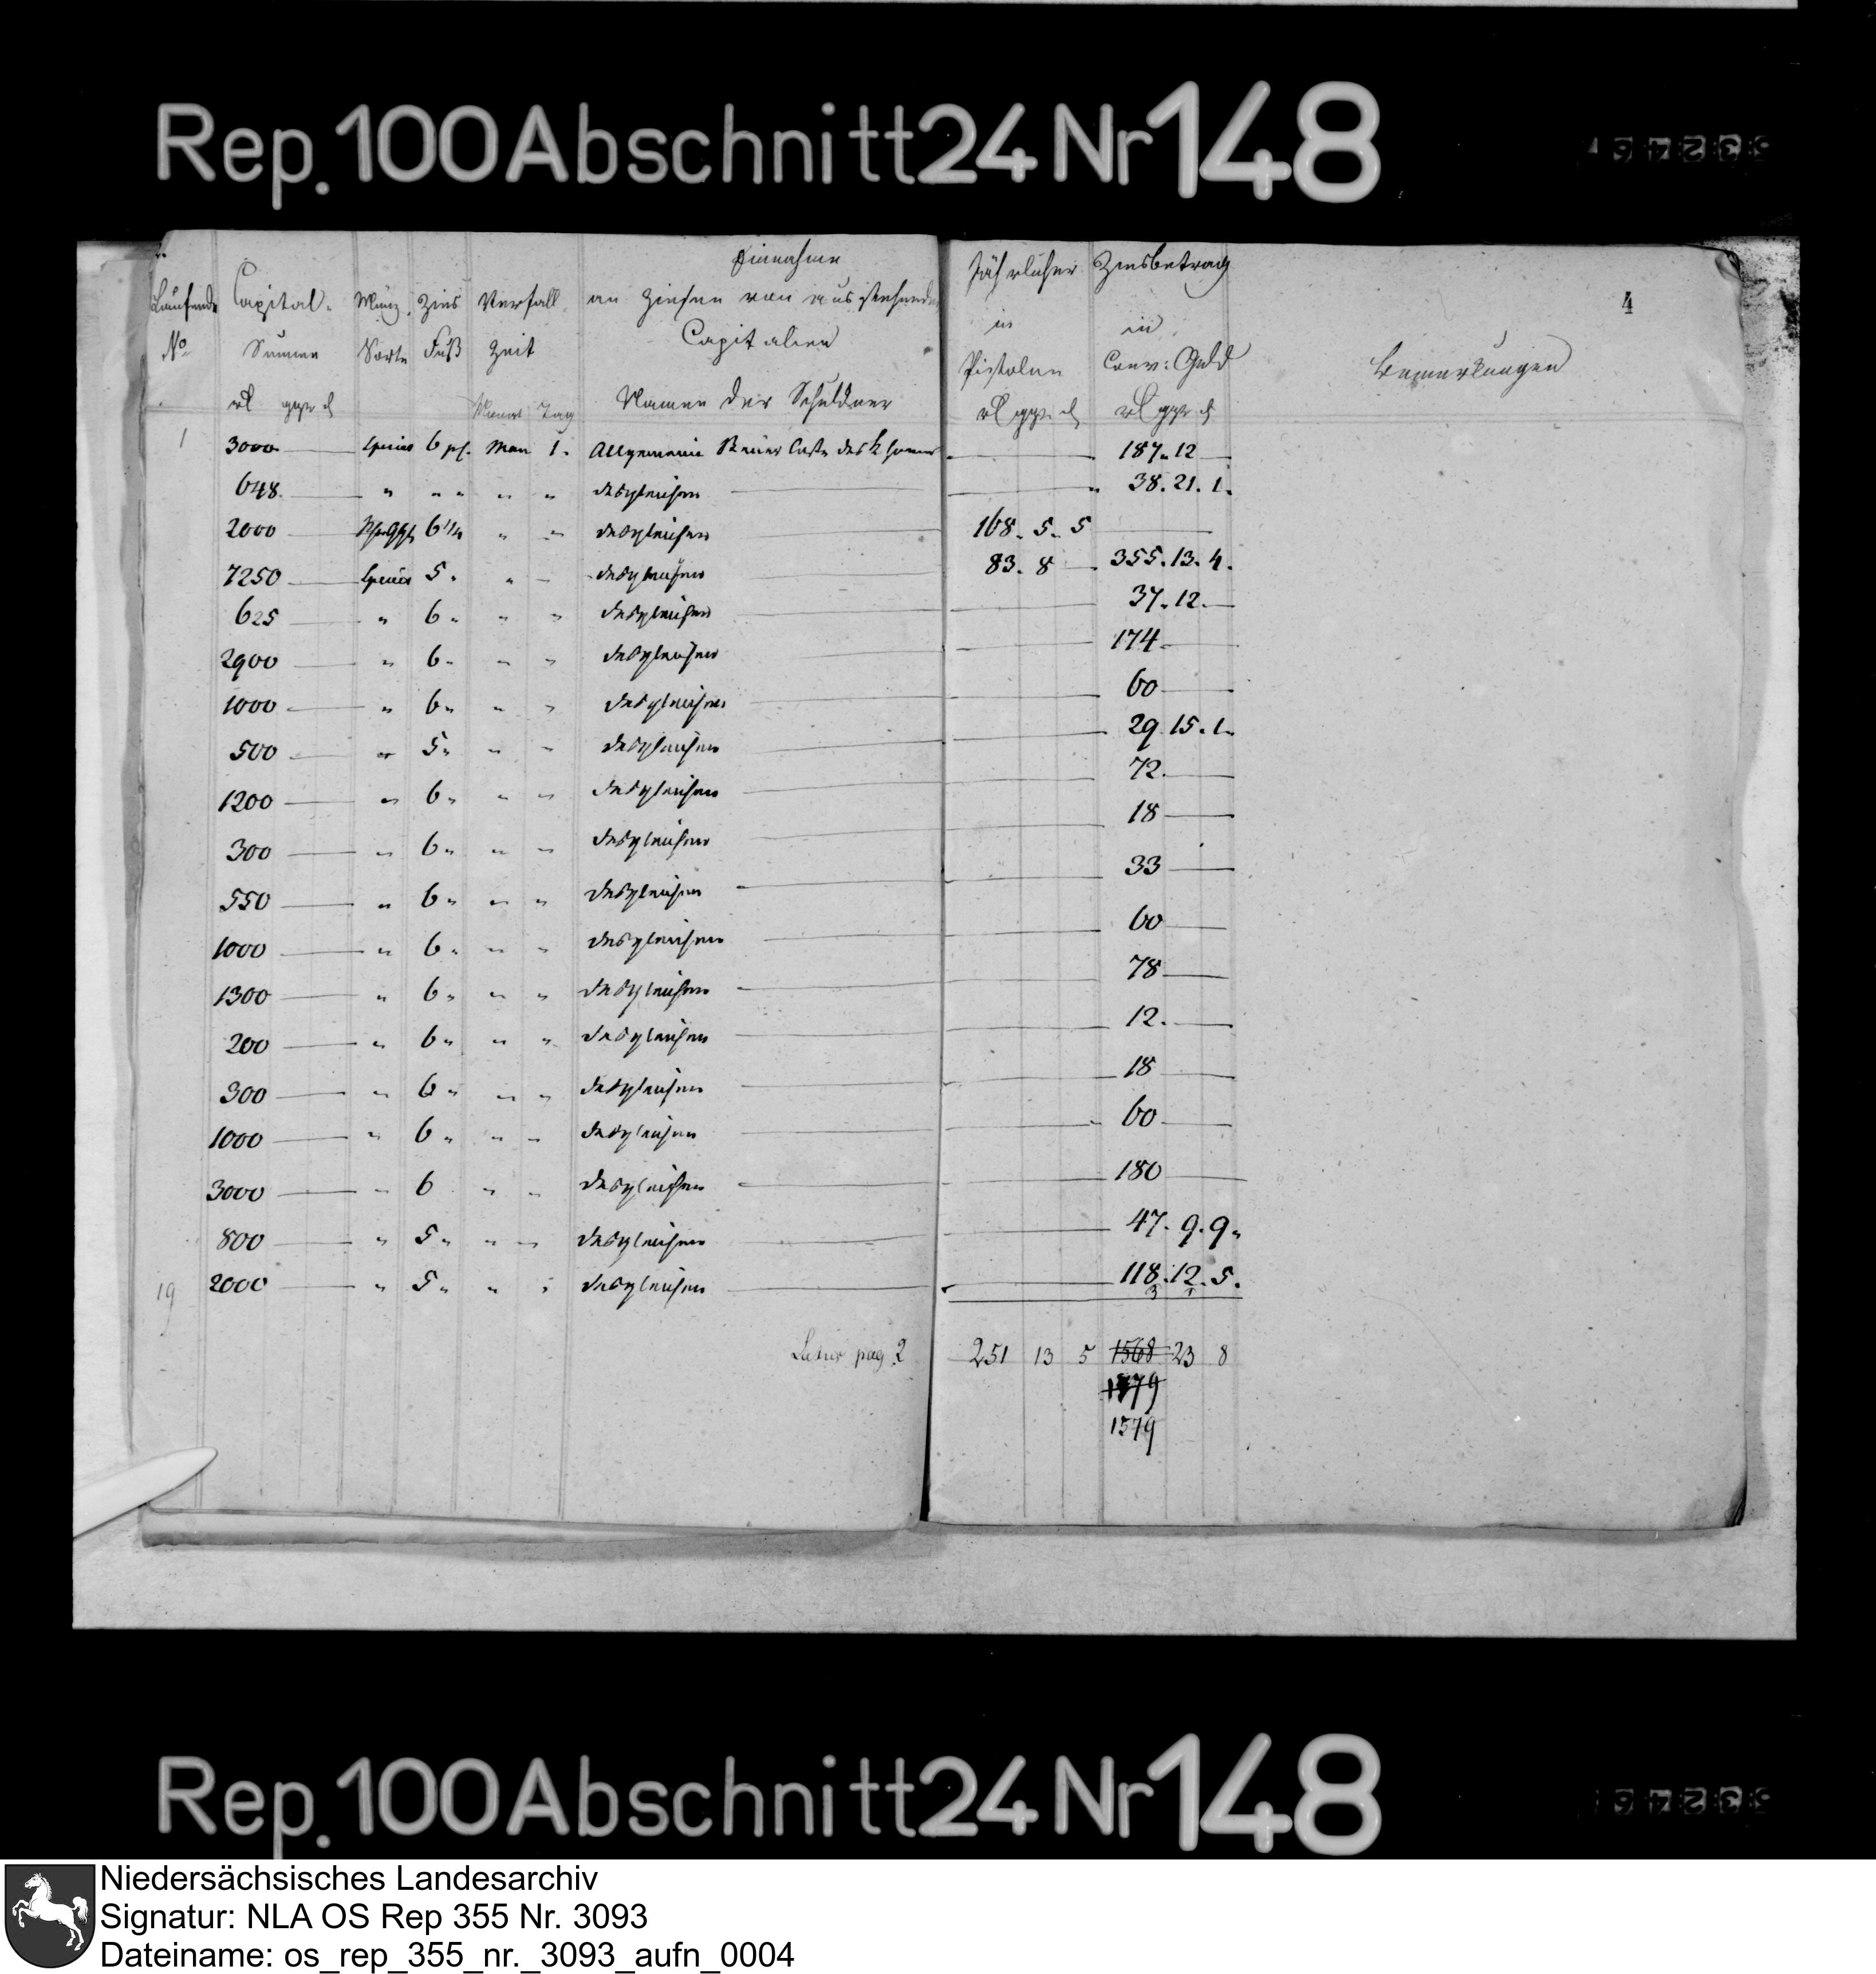 Rep. 100 Abschnitt 24 Nr 148
2.
4
Laufende No Capital-Summe Münz-Sorte Zins Fuß Verfall Zeit Einnahme an Zinsen von ausstehenden Capitalien Jährlicher Zinsbetrag in Pistolen in Conv: Geld Bemerkungen
rl ggr d Monat Tag Namen der Schuldner rl ggr d rl ggr d
1 3000 Species 6 pC. May 1. Allgemeine Steuer Casse des 187. 12
648. " " " " " desgleichen 38. 21. 1.
2000 6 1/4 " " desgleichen 168. 5. 5
7250 Species 5. " " desgleichen 83. 8 355. 13. 4.
625 " 6 " " " desgleichen 37. 12.
2900 " 6 " " " desgleichen 174
1000 " 6 " " " desgleichen 60
500 " 5 " " " desgleichen 29. 15. 1.
1200 " 6 " " " desgleichen 72.
300 " 6 " " " desgleichen 18
550 " 6 " " " desgleichen 33
1000 " 6 " " " desgleichen 60
1300 " 6 " " " desgleichen 78
200 " 6 " " " desgleichen 12.
300 " 6 " " " desgleichen 18
1000 " 6 " " " desgleichen 60
3000 " 6 " " desgleichen 180
800 " 5 " " " desgleichen 47. 9. 9.
19 2000 " 5 " " " desgleichen 118. 12. 5.
3 1
Latus pag 2 251 13 5 1568 23 8
1579
1579
Rep. 100 Abschnitt 24 Nr 148
Niedersächsisches Landesarchiv
Signatur: NLA OS Rep 355 Nr. 3093
Dateiname: os_rep_355_nr._3093_aufn_0004